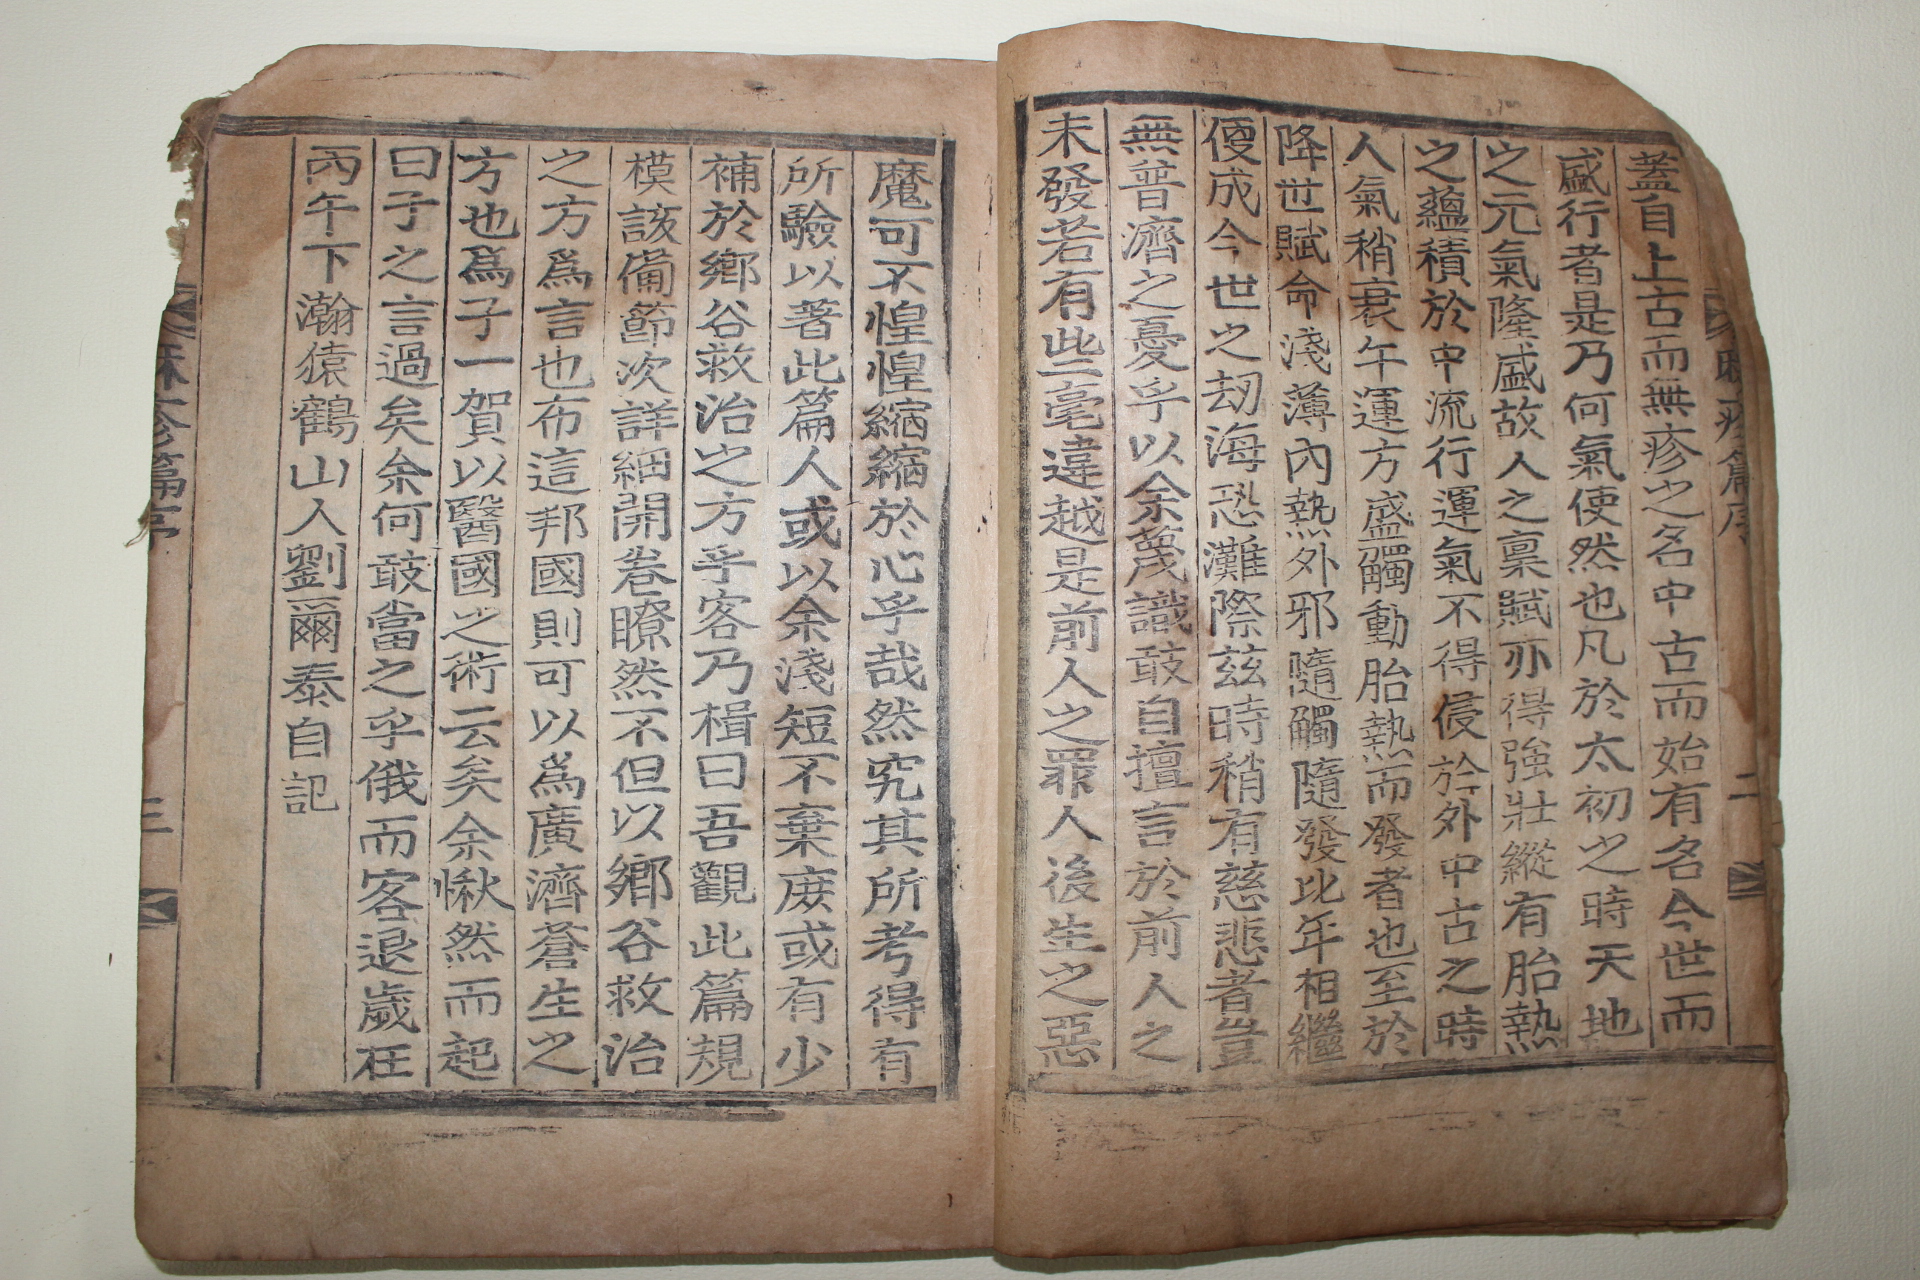 蓋自上古而無疹之名中古而始有名今世而
盛行者是乃何氣使然也凡於太初之時天地
之元氣隆盛故人之稟賦亦得強壯縱有胎熱
之蘊積於中流行運氣不得侵於外中古之時
人氣稍衰午運方盛觸動胎熱而發者也至於
降世賦命淺薄內熱外邪隨觸隨發比年相繼
便成今世之刼海恐灘際茲時稍有慈悲者豈
無普濟之憂乎以余蔑識敢自擅言於前人之
未發若有些毫違越是前人之罪人後生之惡
魔可不惶惶縮縮於心乎哉然究其所考得有
所驗以著此篇人或以余淺短不棄庶或有少
補於鄉谷救治之方乎客乃楫曰吾觀此篇規
模該備節次詳細開卷瞭然不但以鄉谷救治
之方爲言也布這邦國則可以爲廣濟蒼生之
方也爲子一賀以醫國之術云矣余愀然而起
曰子之言過矣余何敢當之乎俄而客退歲在
丙午下瀚猿鶴山人劉爾泰自記
麻疹篇序
二
麻疹篇序
三